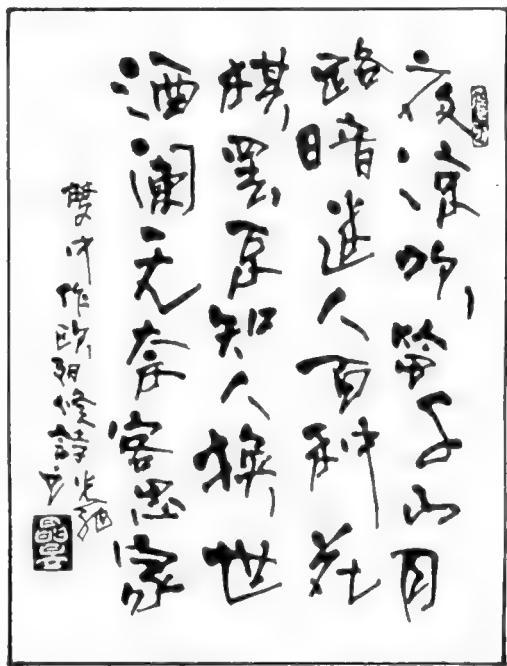 夜涼吹笛千山月
路暗迷人百种花
棋罢不知人換世
酒瀾无奈客思家
夢中作欧陽修詩